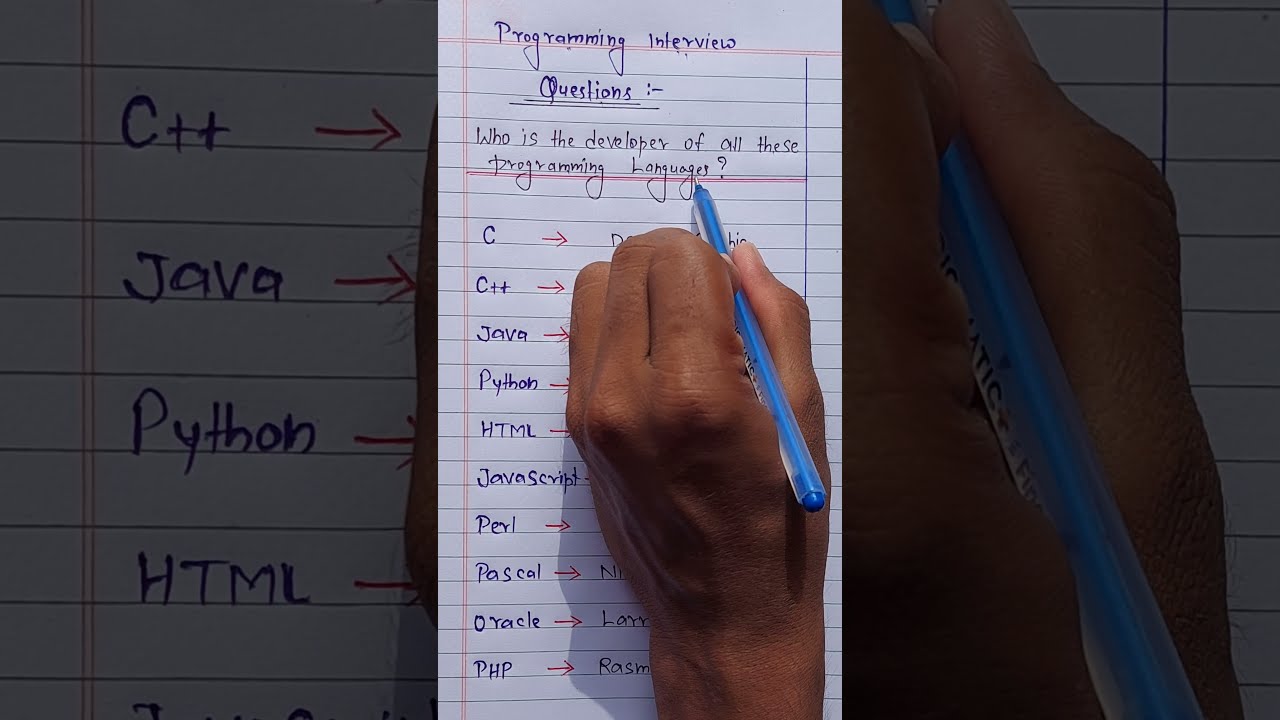 Programming Interview
Questions :-
Who is the developer of all these
Programming Languages?
C →
C++ →
Java →
Python →
HTML →
Javascript -
Perl →
Pascal → Ni
Oracle → Larr
PHP → Rasm
C++ →
Java →
Python →
HTML →